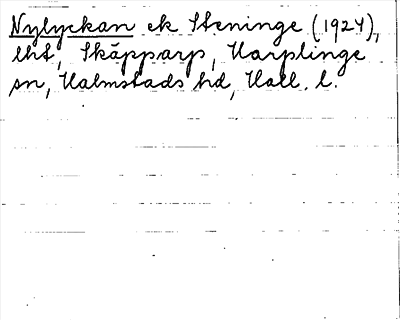 Nylyckan ek Steninge (1924),
lht, Skäpparp, Harplinge
sn, Halmstads hd, Hall. l.